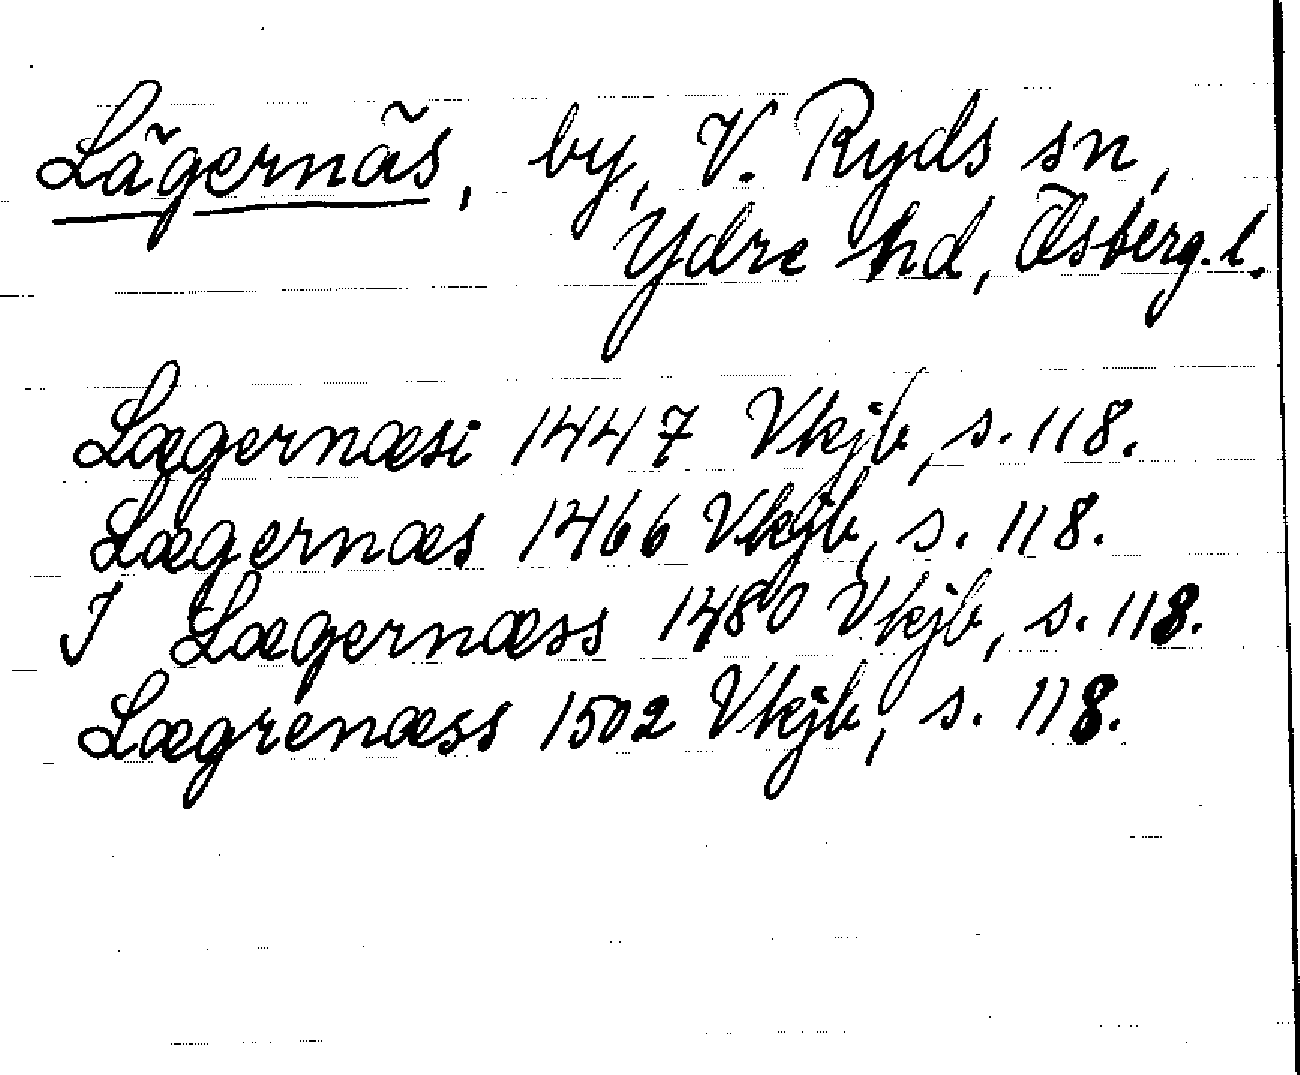 Lägernäs, by, V. Ryds sn,
Ydre hd, Ösberg. l.
Lægernæsi 1447 Vkjb, s. 118.
Lægernæs 1466 Vkjb, s. 118.
J Lægernæss 1480 Vkjb, s. 118.
Lægrenæss 1502 Vkjb, s. 118.